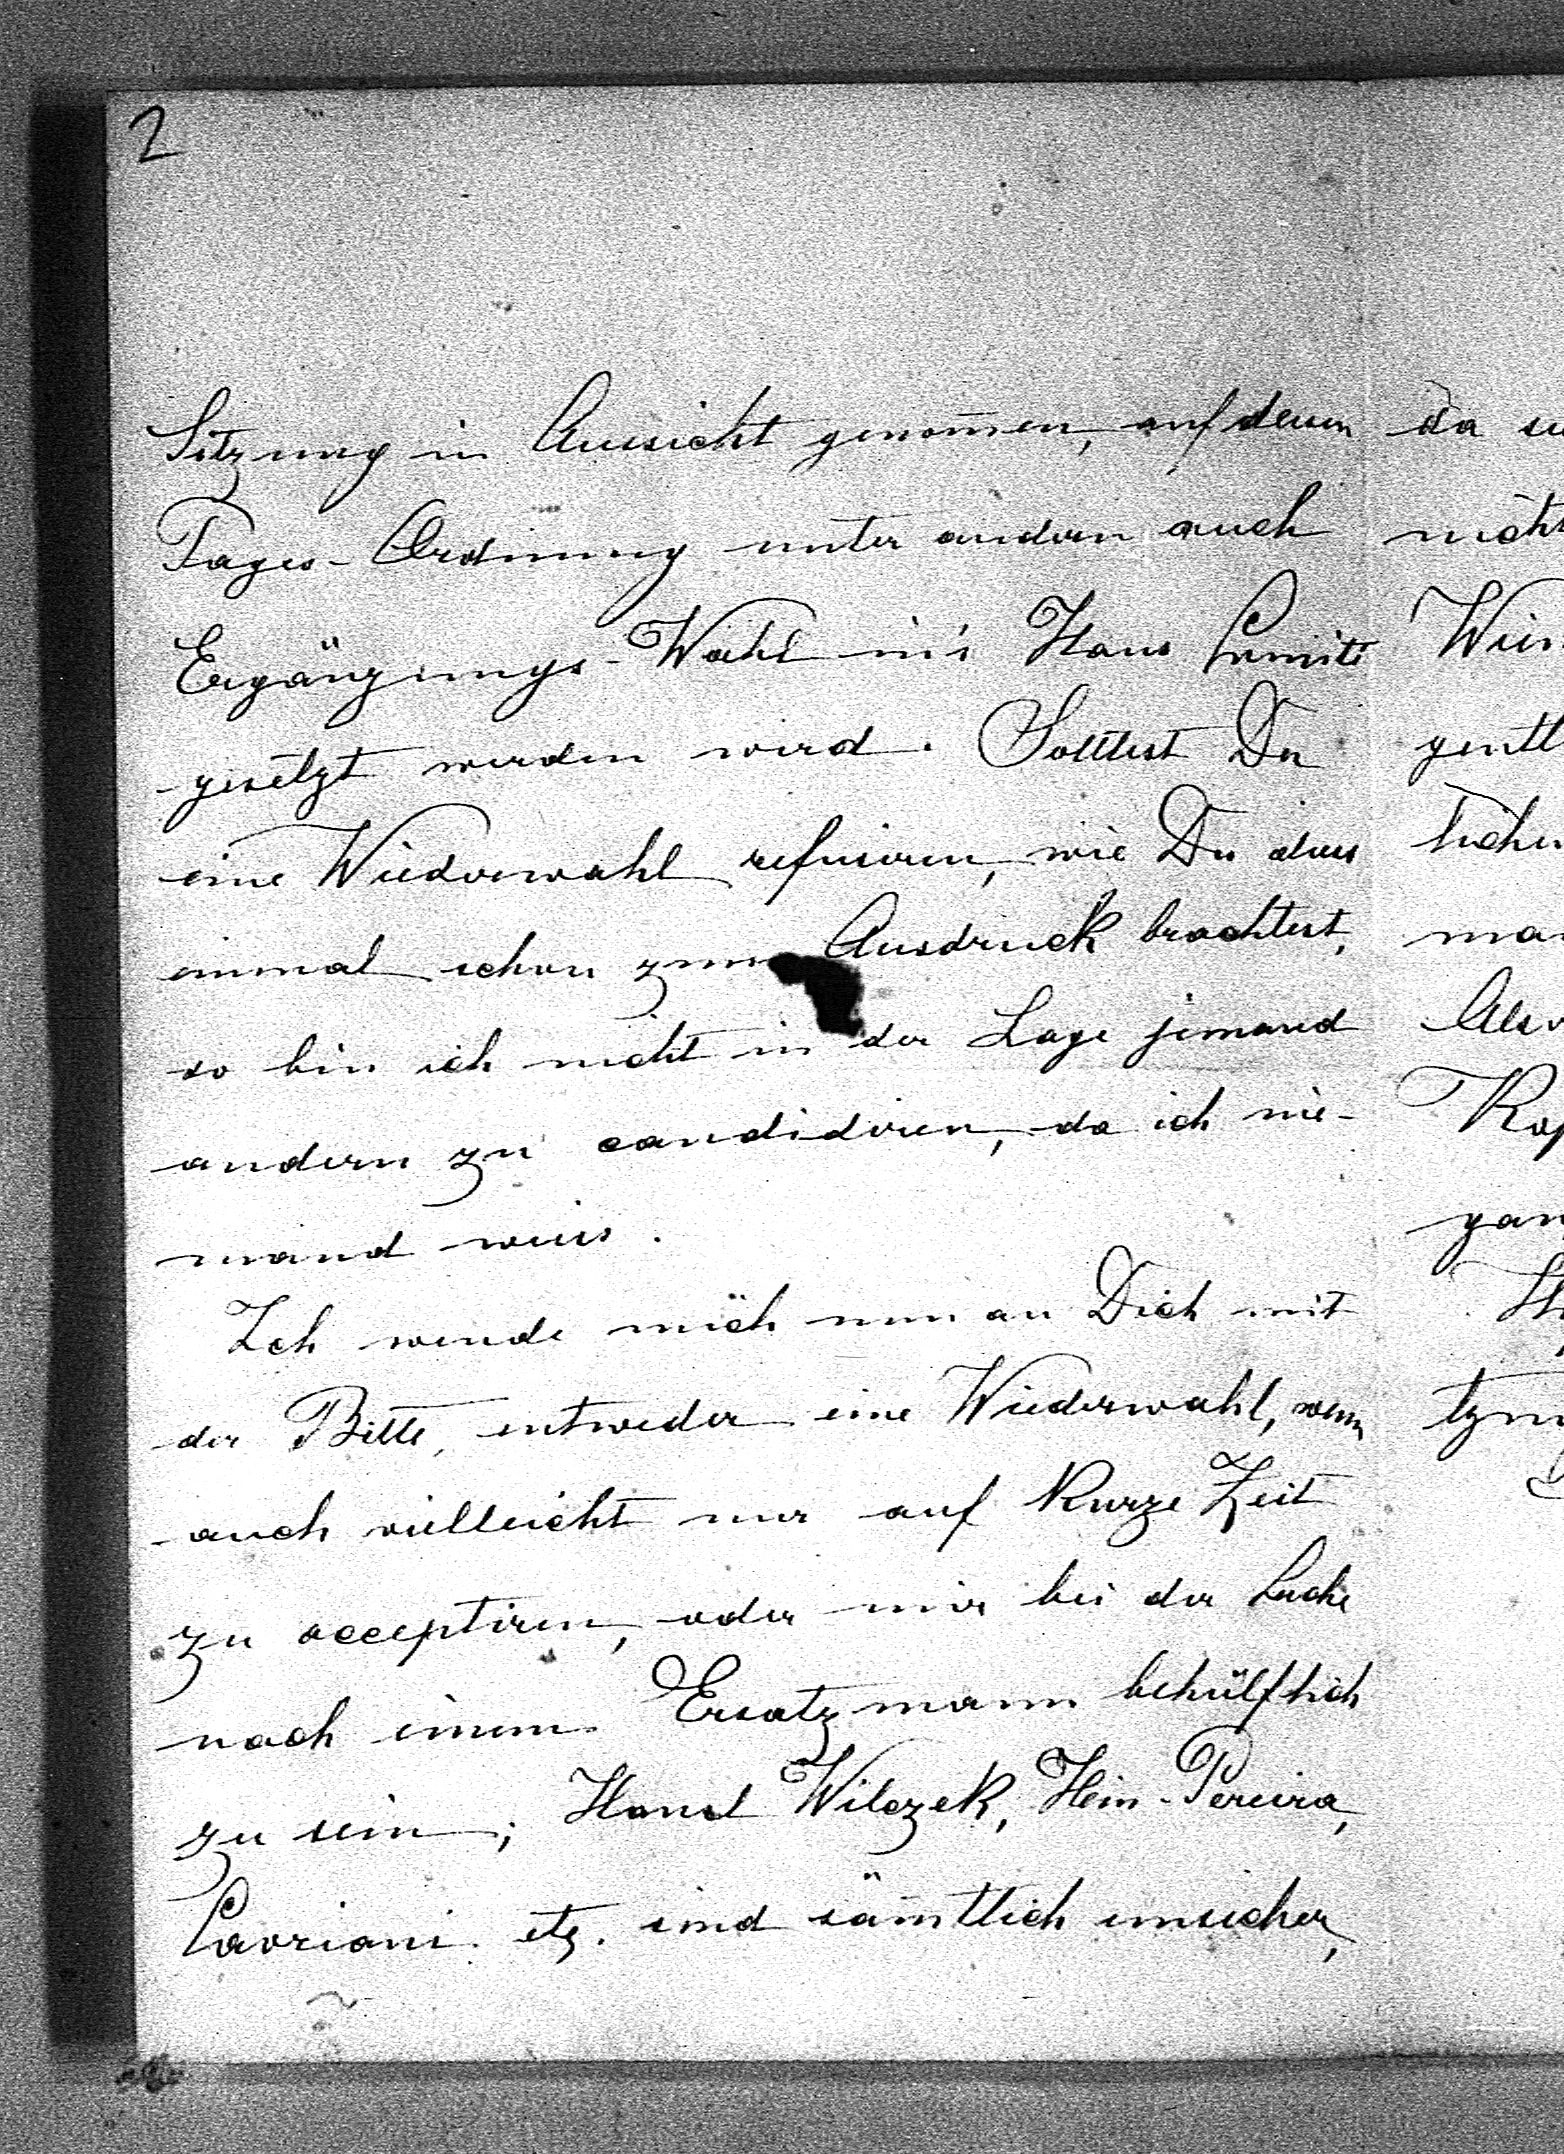 2
Sitzung in Aussicht genom̄en, auf deren
Tages-Ordnung unter andern auch
Ergänzungs-Wahl in's Haus Comité
gesetzt werden wird. Solltest Du
eine Wiederwahl refusiren, wie Du dies
einmal schon zum Ausdruck brachtest,
so bin ich nicht in der Lage jemand
andern zu candidiren, da ich nie-
mand weis.
Ich wende mich nun an Dich mit
der Bitte, entweder eine Wiederwahl, wenn
auch vielleicht nur auf Kurze Zeit
zu acceptiren, oder mir bei der Suche
nach einem Ersatzmann behülflich
zu sein; Hansl Wilczek, Hein-Pereira,
Cavriani etz. sind sämtlich unsicher,
da